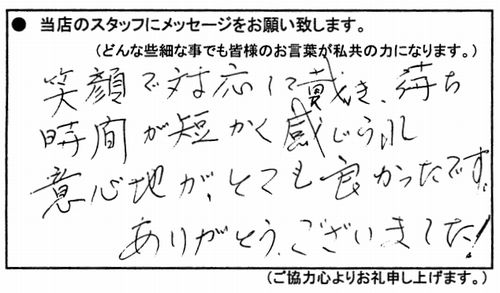 ● 当店のスタッフにメッセージをお願い致します。
(どんな些細な事でも皆様のお言葉が私共の力になります。)
笑顔で対応して戴き、待ち
時間が短かく感じられ
意心地が、とても良かったです。
ありがとうございました!
(ご協力心よりお礼申し上げます。)